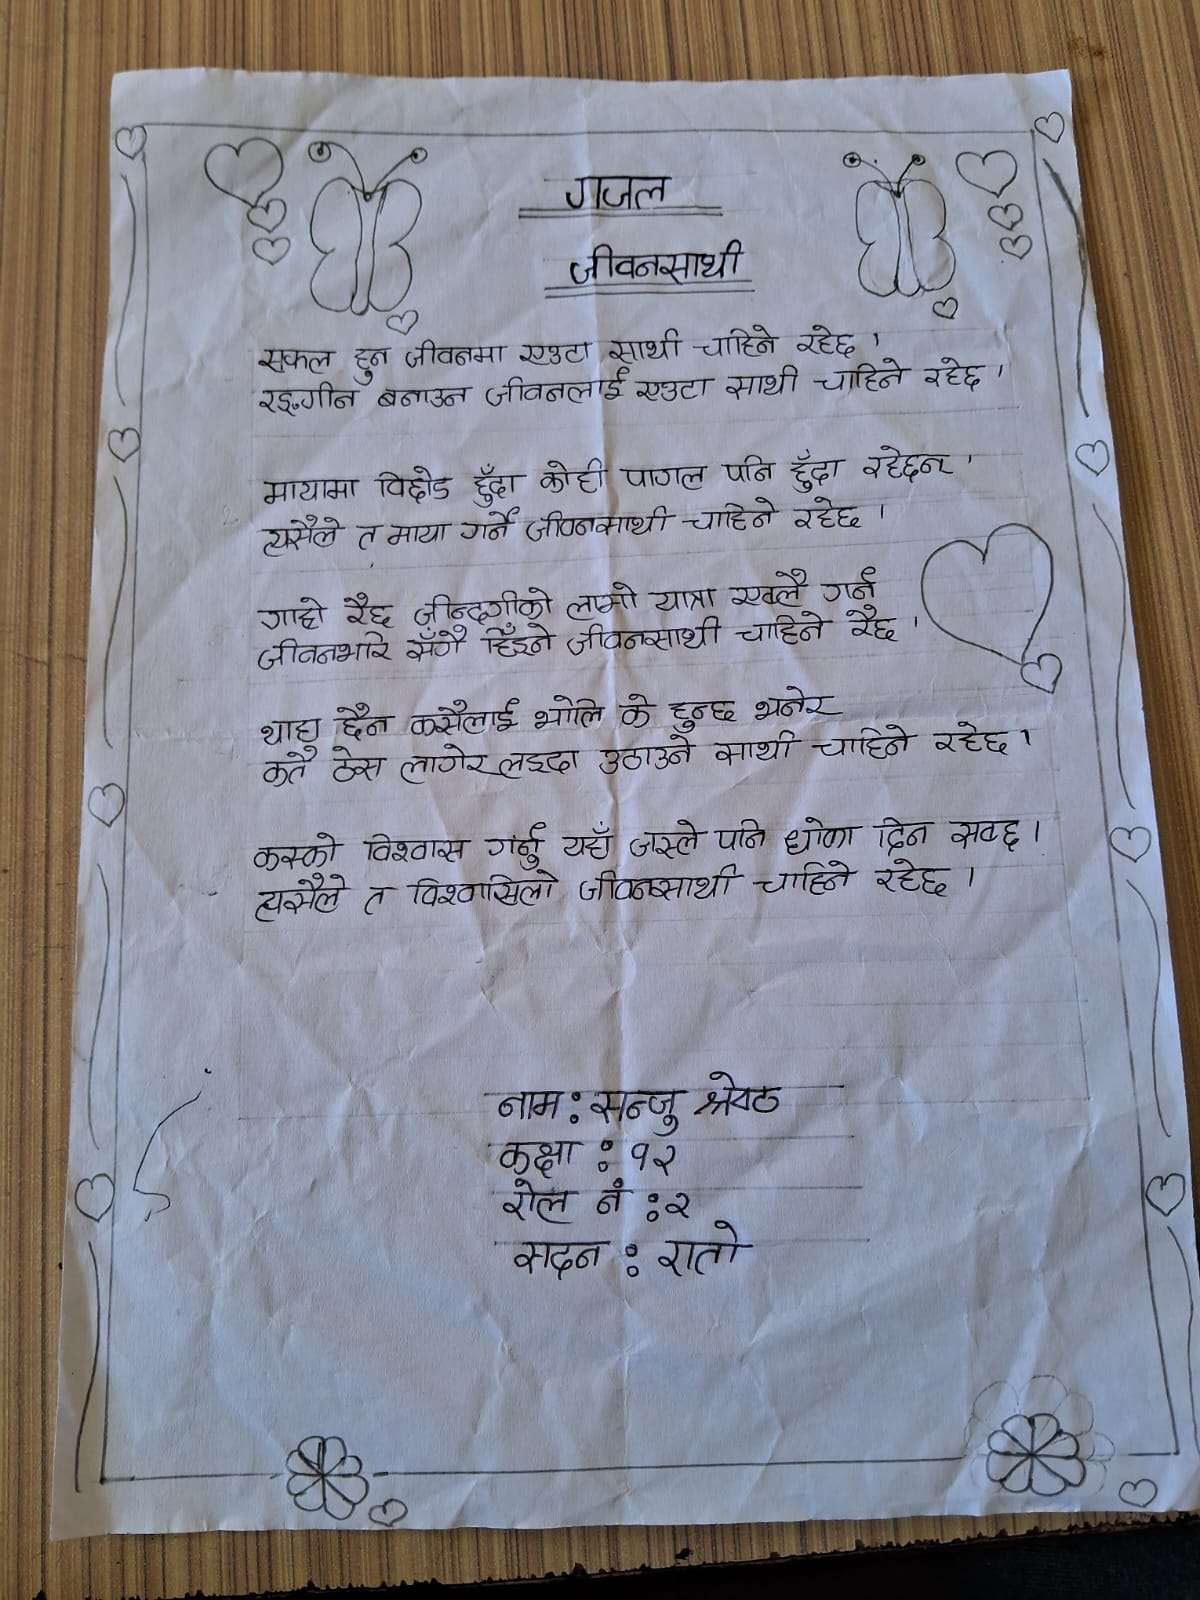 गजल
जीवनसाथी
सकल हुन जीवनमा एउटा साथी चाहिने रहेछ ।
रङ्गीन बनाउन जीवनलाई एउटा साथी चाहिने रहेछ ।
मायामा विछोड हुँदा कोही पागल पनि हुँदा रहेछन् ।
त्यसैले त माया गर्ने जीवनसाथी चाहिने रहेछ ।
गाह्रो रैछ जीन्दगीको लामो यात्रा एक्लै गर्न
जीवनभरि सँगै हिँड्ने जीवनसाथी चाहिने रैछ ।
थाहा छैन कसैलाई भोलि के हुन्छ भनेर
कतै ठेस लागेर लड्दा उठाउने साथी चाहिने रहेछ ।
कस्को विश्वास गर्नु यहाँ जस्ले पनि धोका दिन सक्छ ।
त्यसैले त विश्वासिलो जीवनसाथी चाहिने रहेछ ।
नाम : सन्जु श्रेष्ठ
कक्षा : १२
रोल नं : २
सदन : रातो